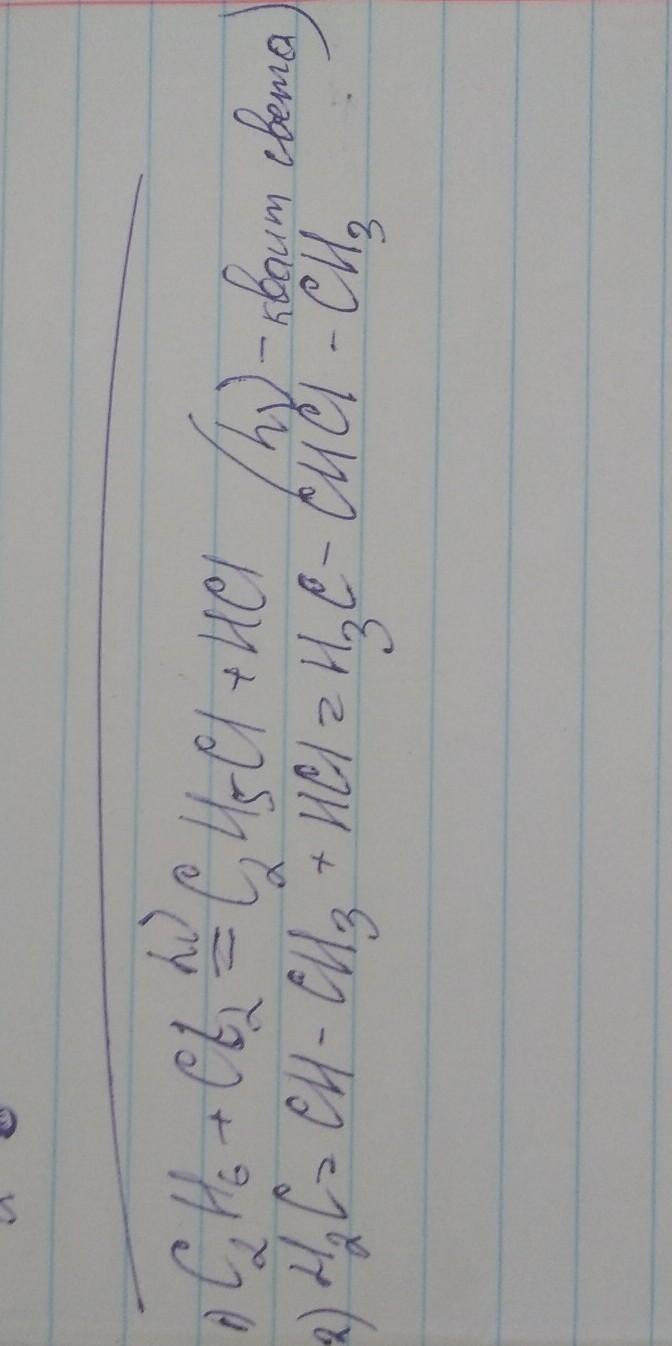 1) C₂H₆ + Cl₂ =hν C₂H₅Cl + HCl (hν - квант света)
2) H₂C = CH - CH₃ + HCl = H₃C - CHCl - CH₃